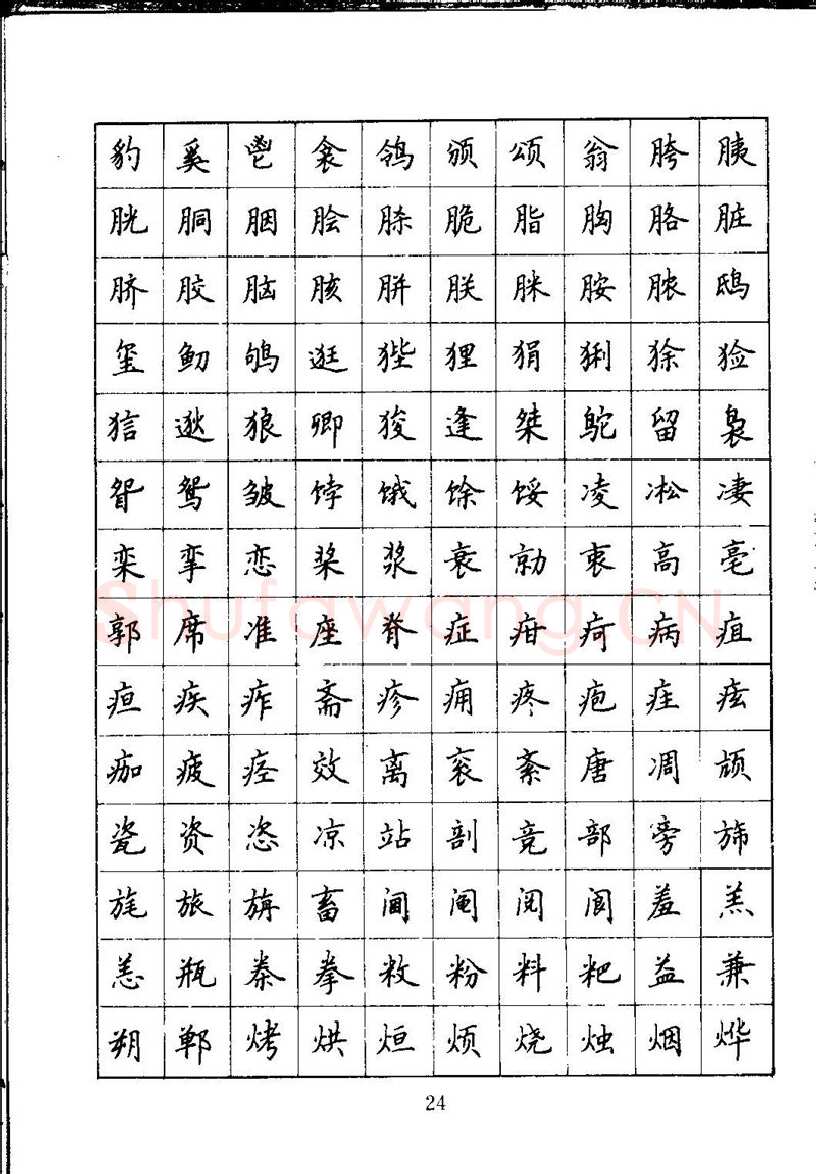 豹 奚 鬯 衾 鸰 颁 颂 翁 胯 胰
胱 胴 胭 脍 脎 脆 脂 胸 胳 脏
脐 胶 脑 胲 胼 朕 脒 胺 脓 鸱
玺 鱽 鸲 逛 狴 狸 狷 猁 狳 猃
狺 逖 狼 卿 狻 逢 桀 鸵 留 袅
眢 鸳 皱 饽 饿 馀 馁 凌 凇 凄
栾 挛 恋 桨 浆 衰 勍 衷 高 亳
郭 席 准 座 脊 症 疳 疴 病 疽
疸 疾 痄 斋 疹 痈 疼 疱 疰 痃
痂 疲 痉 效 离 衮 紊 唐 凋 颃
瓷 资 恣 凉 站 剖 竞 部 旁 旆
旄 旅 旃 畜 阃 阄 阅 阆 羞 羔
恙 瓶 桊 拳 敉 粉 料 粑 益 兼
朔 郸 烤 烘 烜 烦 烧 烛 烟 烨
24
Shufawang.CN